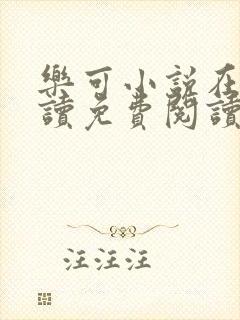 樂可小説在
讀免費閱讀
汪汪汪